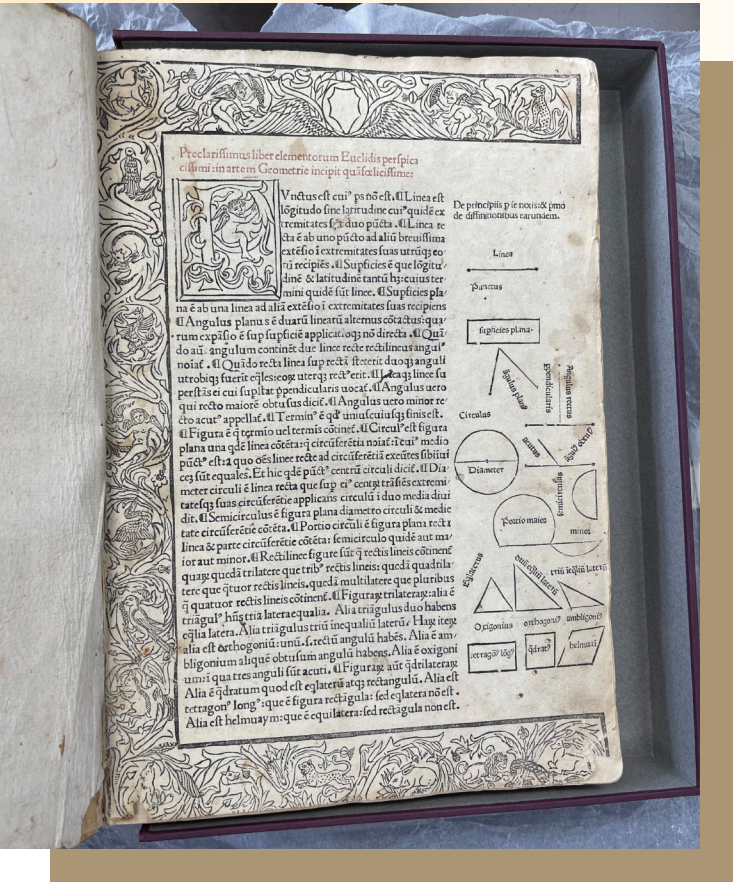 Preclarissimus liber elementorum Euclidis perspica
cissimi: in artem Geometrie incipit quãfœlicissime:
Vnctus est cuiꝰ ps nõ est. ⁋ Linea est
lõgitudo sine latitudine cuiꝰ quidẽ ex
tremitates sũt duo pũcta. ⁋ Linea re
cta ẽ ab uno pũcto ad aliũ breuissima
extẽsio ĩ extremitates suas utrũqꝫ eo
rũ recipiẽs. ⁋ Supficies ẽ que lõgitu/
dinẽ & latitudinẽ tantũ hꝫ: cuius ter
mini quidẽ sũt linee. ⁋ Supficies pla/
na ẽ ab una linea ad aliã extẽsio ĩ extremitates suas recipiens
⁋ Angulus planus ẽ duarũ linearũ alternus cõtactus: qua/
rum expãsio ẽ sup supficiẽ applicatioqꝫ nõ directa. ⁋ Quã/
do aũt angulum continẽt due linee recte rectilineus angulꝰ
noiat̃. ⁋ Quãdo recta linea sup rectã steterit duoqꝫ anguli
utrobiqꝫ fuerit eq̃les: eoꝝ uterqꝫ rectꝰ erit. ⁋ Lineaqꝫ linee su
perstãs ei cui supstat ppendicularis uocat̃. ⁋ Angulus uero
qui recto maiorẽ obtusus dicit̃. ⁋ Angulus uero minor re/
cto acutꝰ appellat̃. ⁋ Terminꝰ ẽ qd̃ uniuscuiusqꝫ finis est.
⁋ Figura ẽ q̃ termĩo uel termĩs cõtinet̃. ⁋ Circulꝰ est figura
plana una qdẽ linea cõtẽta: q̃ circũferẽtia noiat̃: ĩ cuiꝰ medio
pũctꝰ est: a quo oẽs linee recte ad circũferẽtiã exeũtes sibiĩui
cẽ sũt equales. Et hic qdẽ pũctꝰ centrũ circuli dicit̃. ⁋ Dia/
meter circuli ẽ linea recta que sup eiꝰ centꝝ trãsiẽs extremi/
tatesqꝫ suas circũferẽtie applicans circulũ ĩ duo media diui
dit. ⁋ Semicirculus ẽ figura plana diametro circuli & medie
tate circũferẽtie cõtẽta. ⁋ Portio circuli ẽ figura plana recta
linea & parte circũferẽtie cõtẽta: semicirculo quidẽ aut ma/
ior aut minor. ⁋ Rectilinee figure sũt q̃ rectis lineis cõtinent̃
quaꝝ quedã trilatere que tribꝰ rectis lineis: quedã quadrila/
tere que q̃tuor rectis lineis. quedã multilatere que pluribus
q̃ quatuor rectis lineis cõtinent̃. ⁋ Figuraꝝ trilateraꝝ: alia ẽ
triãgulꝰ hñs tria latera equalia. Alia triãgulus duo habens
eq̃lia latera. Alia triãgulus triũ inequaliũ laterũ. Haꝝ iteꝝ
alia est orthogoniũ: unũ .s. rectũ angulũ habẽs. Alia ẽ am/
bligonium aliquẽ obtusum angulũ habens. Alia ẽ oxigoni
um: ĩ qua tres anguli sũt acuti. ⁋ Figuraꝝ aũt q̃drilateraꝝ
Alia ẽ q̃dratum quod est eq̃lateꝝ atqꝫ rectangulũ. Alia est
tetragonꝰ longꝰ: que ẽ figura rectãgula: sed eq̃latera nõ est.
Alia est helmuaym: que ẽ equilatera: sed rectãgula non est.
De principiis p se notis: & pmo
de diffinitionibus earundem.
Linea
Punctus
supficies plana.
ãgulus planꝰ
ppendicularis
Angulus rectus
Circulus
acutus
ãgulꝰ obtusꝰ
Diameter
semicirculus
Portio maior
minor
Eq̃laterus
duũ eq̃liũ laterũ
triũ ĩeq̃liũ laterũ
Oxigonius
orthogonꝰ
ambligoniꝰ
tetragonꝰ lõgꝰ
q̃dratꝰ
helmuaĩ